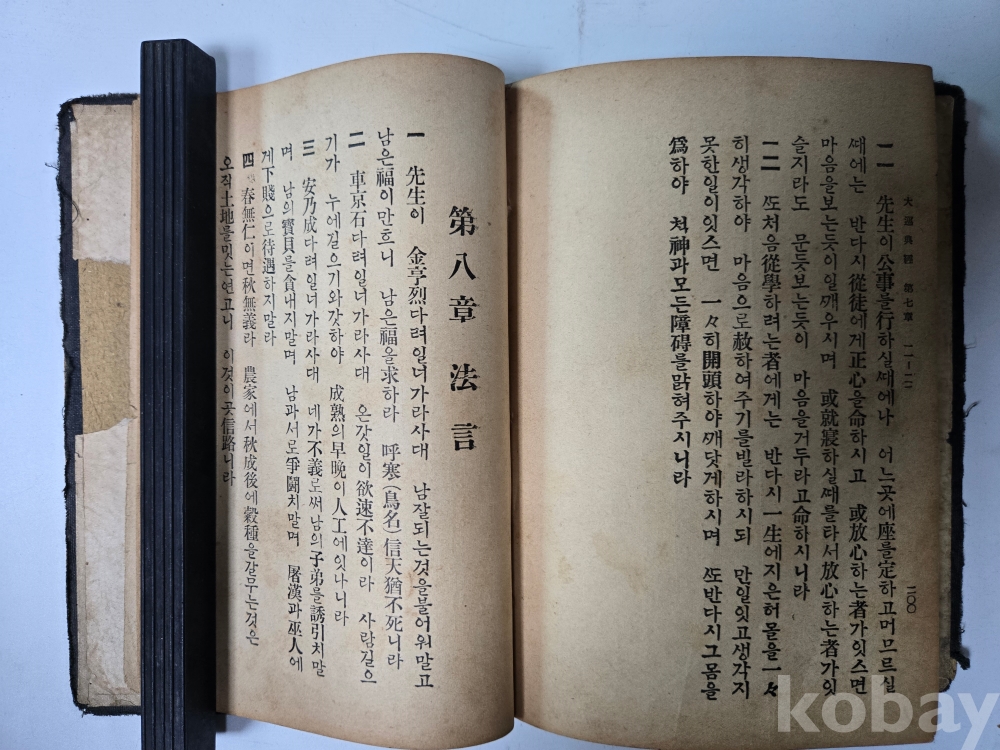 大巡典經 第七章 一一-一二 二〇〇
一一 先生이公事를行하실ᄯᅢ에나 어느곳에座를定하고머므르실
ᄯᅢ에는 반다시從徒에게正心을命하시고 或放心하는者가잇스면
마음을보는듯이일ᄭᅢ우시며 或就寢하실ᄯᅢ를타서放心하는者가잇
슬지라도 문듯보는듯이 마음을거두라고命하시니라
一二 ᄯᅩ처음從學하려는者에게는 반다시一生에지은허몰을一々
히생각하야 마음으로赦하여주기를빌라하시되 만일잇고생각지
못한일이잇스면 一々히開頭하야ᄭᅢ닷게하시며 ᄯᅩ반다시그몸을
爲하야 척神과모든障碍를맑혀주시니라
第八章 法言
一 先生이 金亨烈다려일너가라사대 남잘되는것을불어워말고
남은福이만흐니 남은福을求하라 呼寒(鳥名)信天猶不死니라
二 車京石다려일너가라사대 온갓일이欲速不達이라 사람길으
기가 누에길으기와갓하야 成熟의早晩이人工에잇나니라
三 安乃成다려일너가라사대 네가不義로써남의子弟를誘引치말
며 남의寶貝를貪내지말며 남과서로爭鬪치말며 屠漢과巫人에
게下賤으로待遇하지말라
四 春無仁이면秋無義라 農家에서秋成後에穀種을갈무는것은
오직土地를밋는연고니 이것이곳信路니라
kobay